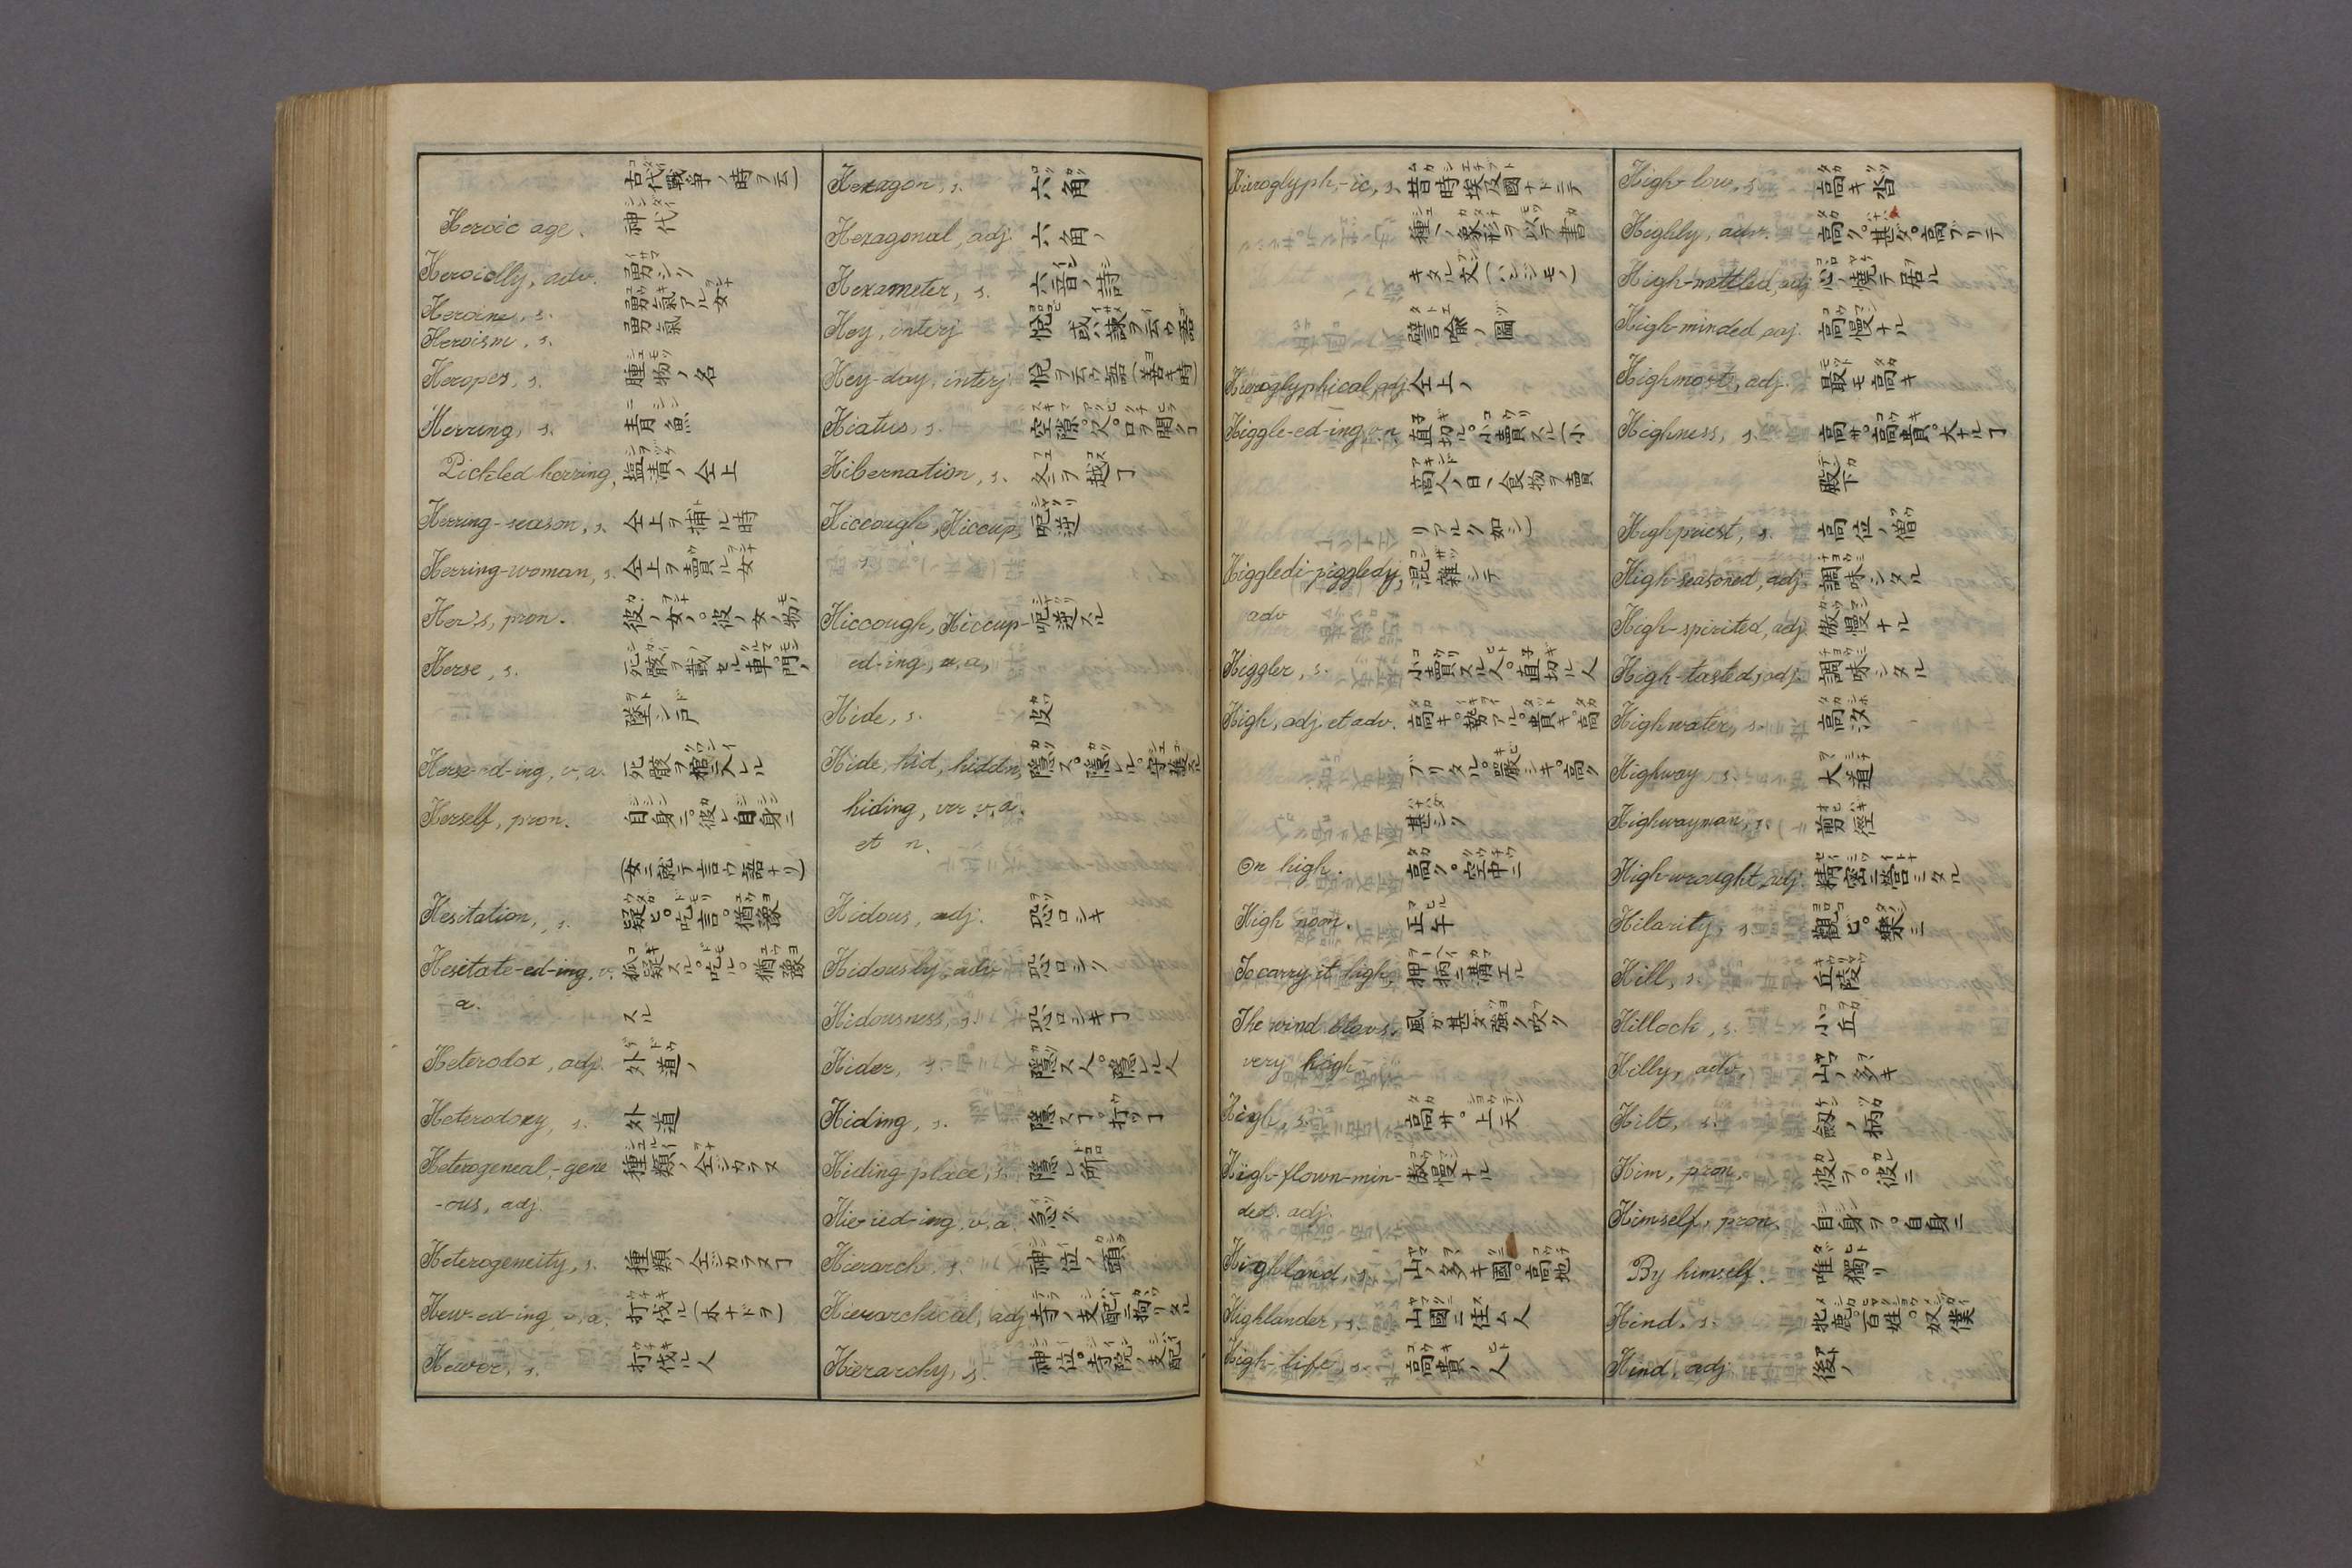 古代戰爭ノ時ヲ云)
Heroic age. 神代
Heroically, adv. 勇シク
Heroine, s. 勇氣アル女
Heroism, s. 勇氣
Heropes, s. 腫物ノ名
Herring, s. 青魚
Pickled herring, 塩漬ノ仝上
Herring-season, s. 仝上ヲ捕ル時
Herring-woman, s. 仝上ヲ賣ル女
Her's, pron. 彼ノ女ノ。彼ノ女ノ物
Herse, s. 死骸ヲ載セル車。門ノ
墜シ戸
Herse-ed-ing, v.a. 死骸ヲ棺ニ入レル
Herself, pron. 自身ニ。彼レ自身ニ
(女ニ就テ言ウ語ナリ)
Hesitation, s. 疑ヒ。吃言。猶豫
Hesitate-ed-ing, v. 狐疑スル。吃ル。猶豫
a. スル
Heterodox, adj. 外道ノ
Heterodoxy, s. 外道
Heterogeneal,-gene 種類ノ仝シカラヌ
-ous, adj.
Heterogeneity, s. 種類ノ仝シカラヌ㆐
Hew-ed-ing, v.a. 打伐ル(木ナドヲ)
Hewer, s. 打伐ル人
Hexagon, s. 六角
Hexagonal, adj. 六角ノ
Hexameter, s. 六音ノ詩
Hey, interj 悦ヒ或ハ諫ヲ云ウ語
Hey-day, interj 悦ヲ云ウ語(善キ時)
Hiatus, s. 空隙。欠。口ヲ開ク㆐
Hibernation, s. 冬ヲ越ヿ
Hiccough, Hiccup, 呃逆
s.
Hiccough, Hiccup- 呃逆スル
ed-ing, v.a,
Hide, s. 皮
Hide, hid, hidden, 隱ス。隱レル。守護ス
hiding, irr v.a.
et n.
Hidous, adj. 恐ロシキ
Hidously, adv 恐ロシク
Hidousness, s. 恐ロシキヿ
Hider, s. 隱ス人。隱レル人
Hiding, s. 隱スヿ。打ツヿ
Hiding-place, s. 隱レ所
Hie-ied-ing, v.a. 急グ
Hierarch, s. 神位ノ頭
Hierarchical, adj 寺ノ支配ニ拘リタル
Hierarchy, s. 神位。寺院ノ支配
Hieroglyph,-ic, s, 昔時埃及國ナドニテ
種々ノ象形ヲ以テ書
キタル文(ハンジモノ)
譬喩ノ圖
Hieroglyphical, adj 仝上ノ
Higgle-ed-ing, v.n 直切ル。小賣スル(小
商人ノ日々食物ヲ賣
リアルク如シ)
Higgledi-piggledy, 混雜シテ
adv
Higgler, s. 小賣スル人。直切ル人
High, adj. et adv. 高キ。勢アル。貴キ。高
ブリタル。嚴シキ。高ク
甚シク
On high. 高ク。空中ニ
High noon. 正午
To carry it high, 押柄ニ構エル
The wind blovs. 風ガ甚タ強ク吹ク
very high
High, s. 高サ。上天
High-flown-min- 傲慢ナル
ded. adj.
Highland, s. 山ノ多キ國。高地
Highlander, s. 山國ニ住ム人
High-life, s. 高貴ノ人
High-low, s. 高キ沓
Highly, adv. 高ク。甚タ。高ブリテ
High-mettled, adj 心ノ燒テ居ル
High-minded, adj. 高慢ナル
Highmost, adj. 最モ高キ
Highness, s. 高サ。高貴。大ナルヿ
殿下
Highpriest, s. 高位ノ僧
High-seasoned, adj. 調味シタル
High-spirited, adj. 傲慢ナル
High-tasted, adj. 調味シタル
Highwater, s. 高汐
Highway, s. 大道
Highwayman, s. 剪徑
High-wrought, adj. 精密ニ營ミタル
Hilarity, s. 觀ヒ。樂ミ
Hill, s. 丘陵
Hillock, s. 小丘
Hilly, adv, 山ノ多キ
Hilt, s. 劔ノ柄
Him, pron. 彼レヲ。彼レニ
Himself, pron. 自身ヲ。自身ニ
By himself. 唯獨リ
Hind, s. 牝鹿。百姓。奴僕
Hind, adj 後ノ